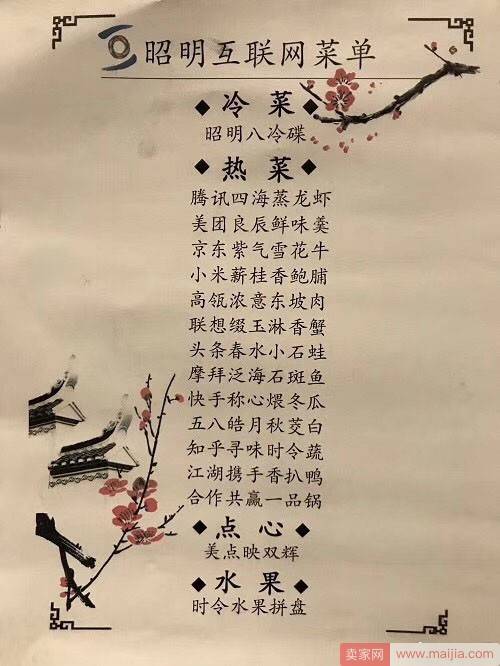 昭明互联网菜单
◆ 冷菜 ◆
昭明八冷碟
◆ 热菜 ◆
腾讯四海蒸龙虾
美团良辰鲜味羹
京东紫气雪花牛
小米薪桂香鲍脯
高瓴浓意东坡肉
联想缀玉淋香蟹
头条春水小石蛙
摩拜泛海石斑鱼
快手称心煨冬瓜
五八皓月秋茭白
知乎寻味时令蔬
江湖携手香扒鸭
合作共赢一品锅
◆ 点心 ◆
美点映双辉
◆ 水果 ◆
时令水果拼盘
卖家网 www.maijia.com